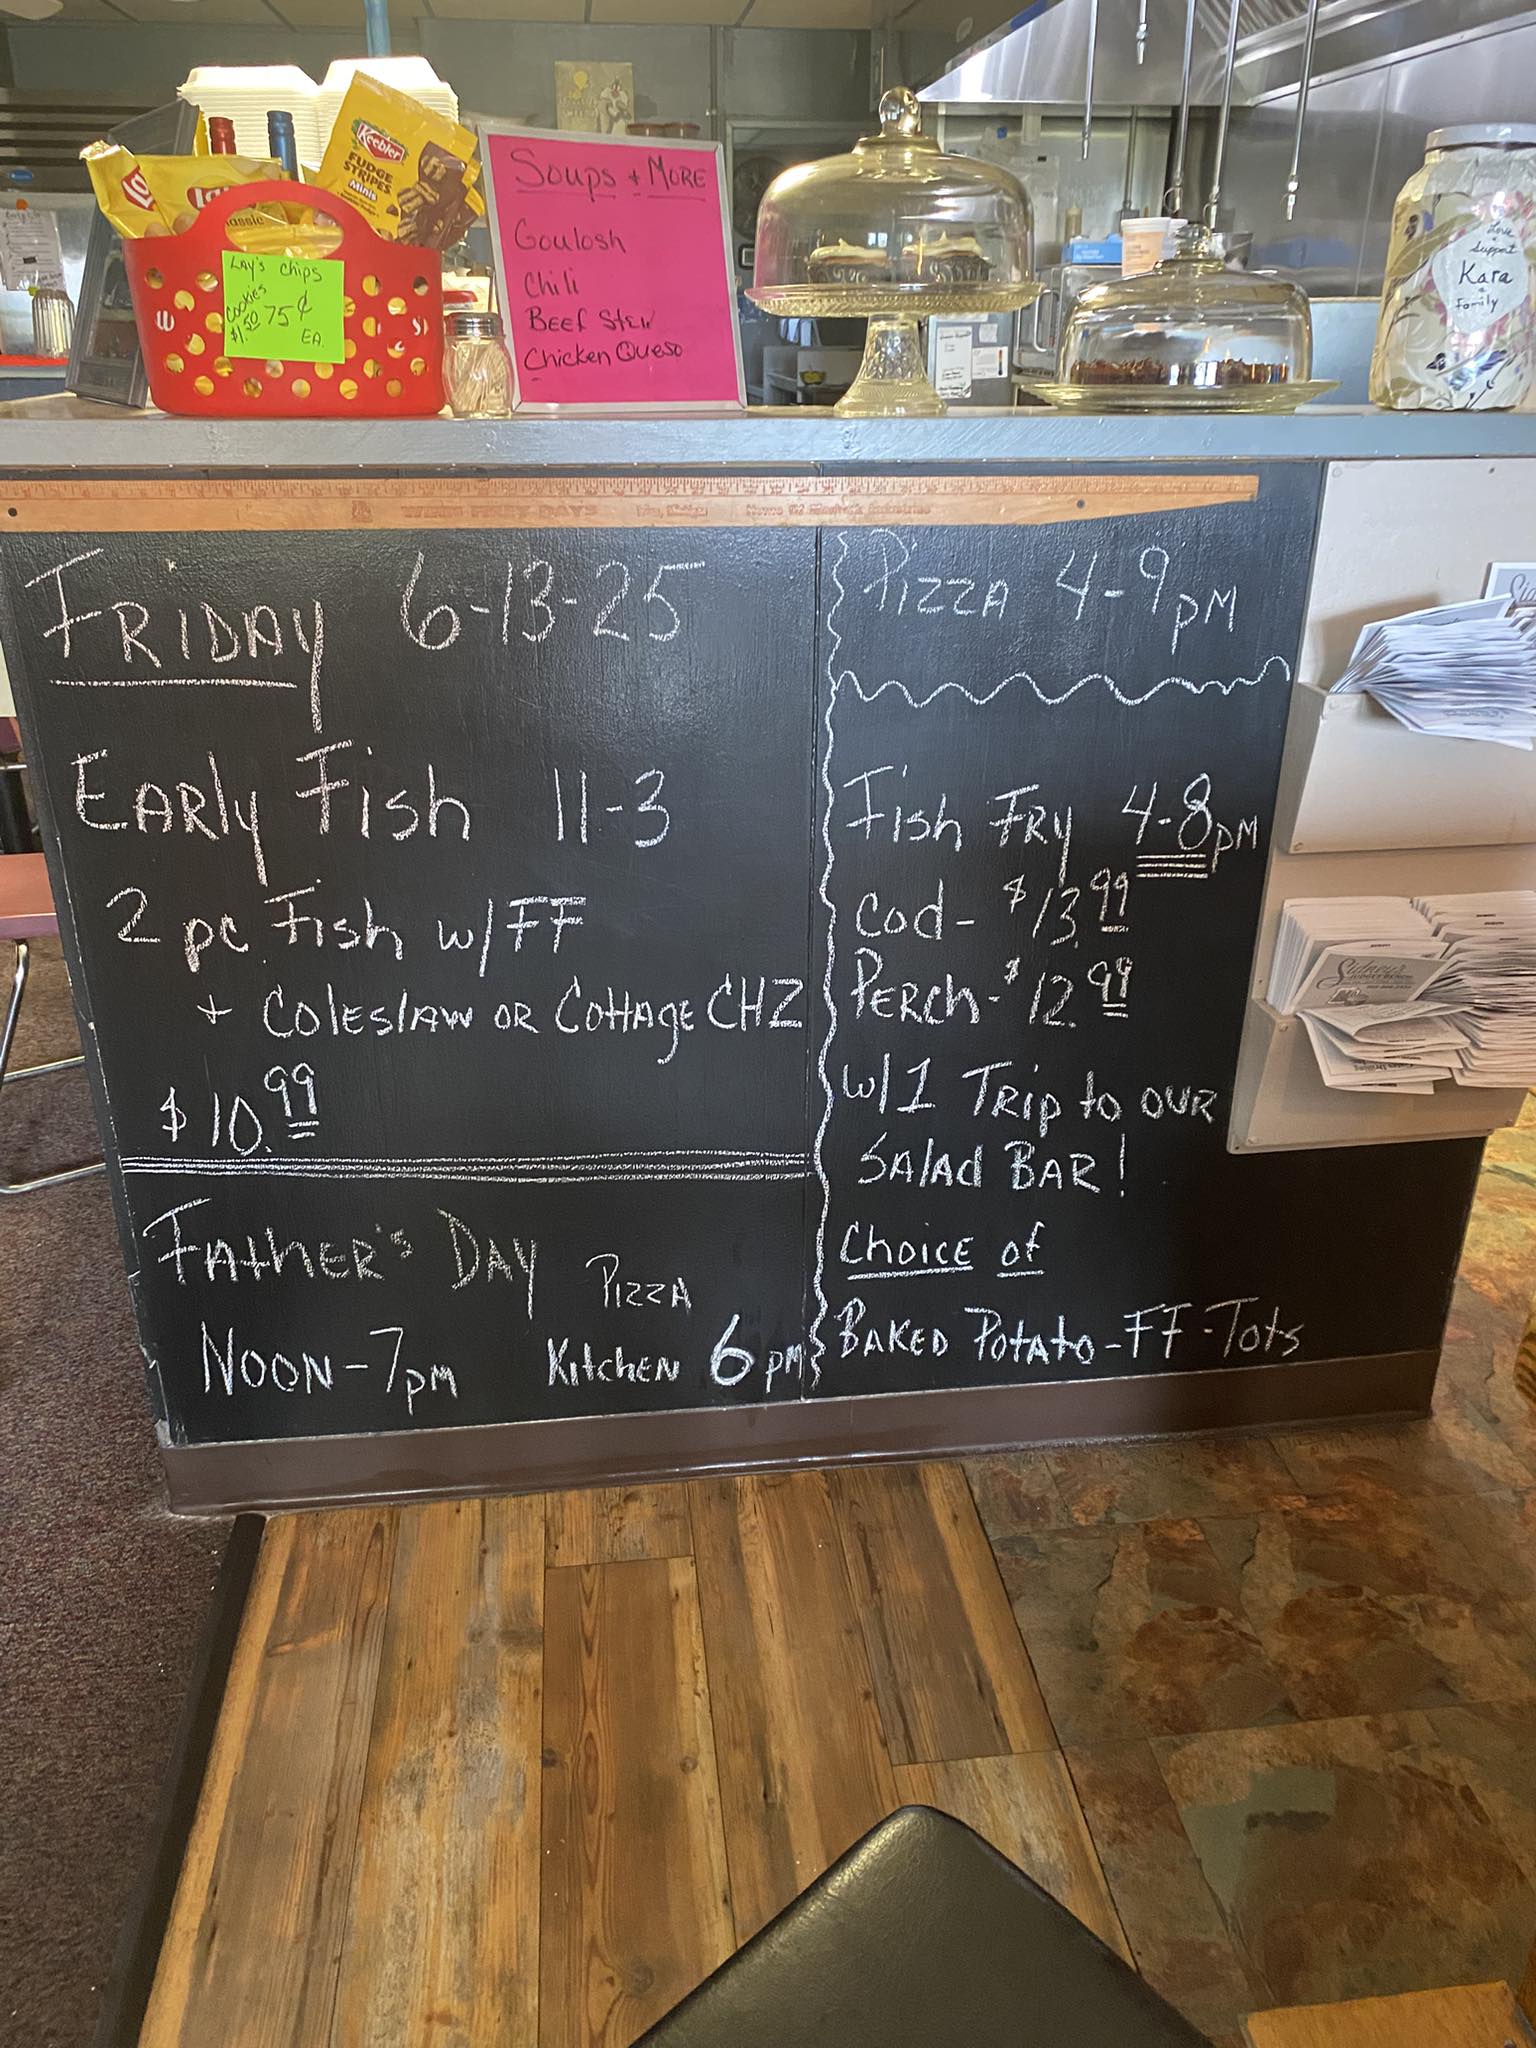 Keebler
FUDGE
STRIPES
Minis
LAY'S Chips
Cookies
$1.50
75¢
EA.
Soups & MORE
Goulosh
Chili
BEEF Stew
Chicken Queso
Love
Support
Kara
Family
FRIDAY 6-13-25
EARly Fish 11-3
2 pc. Fish w/ FF
+ ColeslAW OR CottAgE CHZ
$10.99
FAthER'S DAy
NOON-7pm
PIZZA
KitchEN 6pm
PIZZA 4-9pm
Fish FRY 4-8pm
Cod- $13.99
PERch- $12.99
w/1 TRip to OUR
SAlAd BAR!
Choice of
BAKED PotAto-FF-Tots